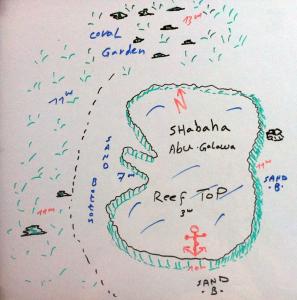 13m
coral
Garden
11m
N
SHabaha
Abu-Galawa
SAND BOTTOM
7m
11m
Reef TOP
3m
SAND
.B.
11m
10m
SAND
.B.